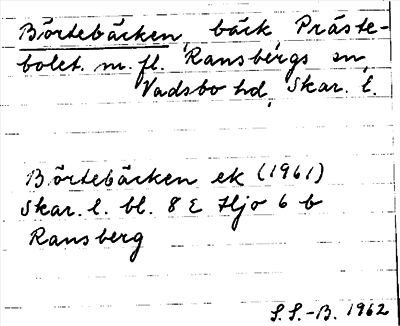 Börtebäcken, bäck Präste-
bolet m. fl. Ransbergs sn,
Vadsbo hd, Skar. l.
Börtebäcken ek (1961)
Skar. l. bl. 8 E Hjo 6 b
Ransberg
S.S.-B. 1962